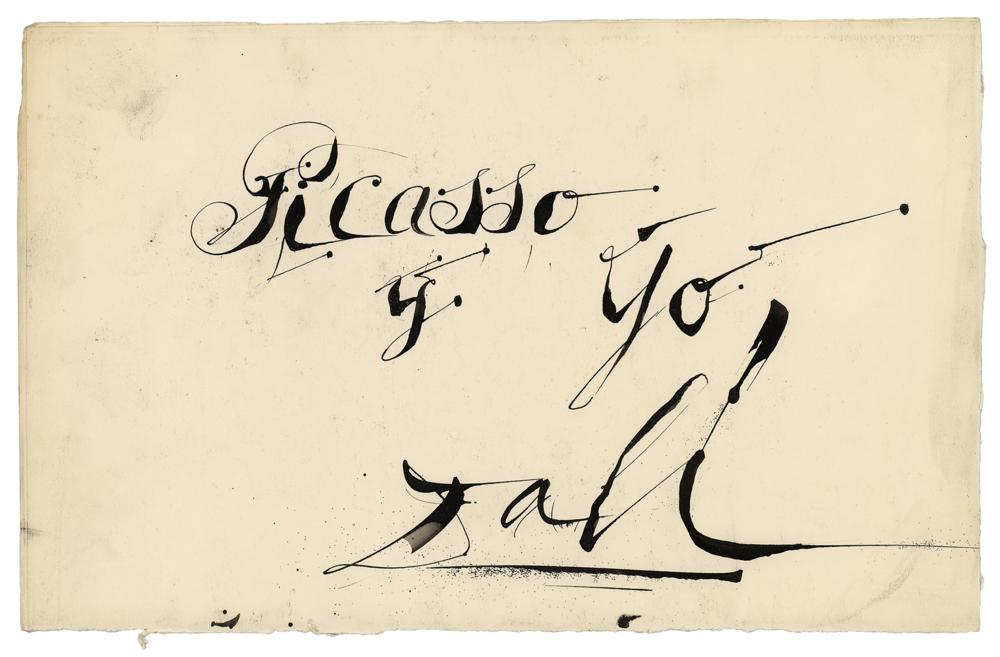 Picasso
y Yo
Dalí